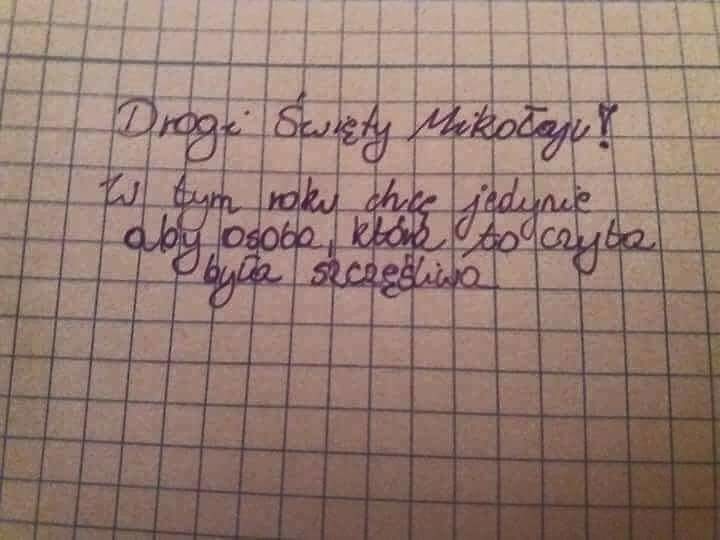 Drogi Święty Mikołaju!
W tym roku chcę jedynie
aby osoba, która to czyta
była szczęśliwa